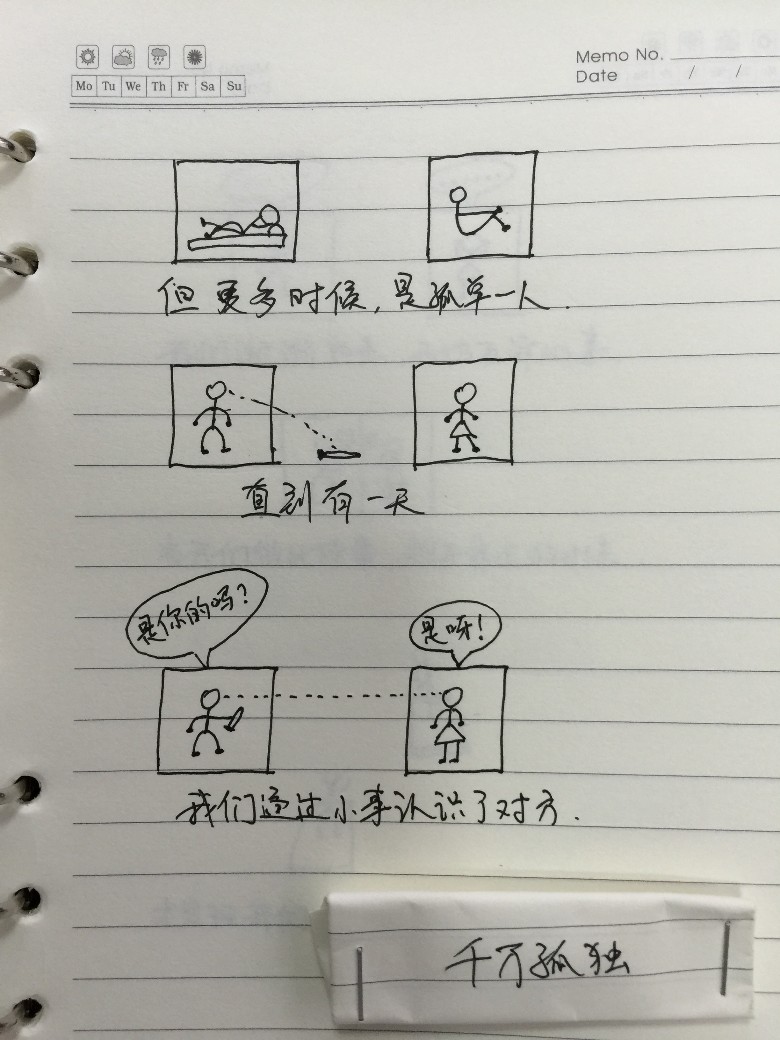 Memo No.
Date / /
Mo Tu We Th Fr Sa Su
但更多时候,是孤单一人.
直到有一天
是你的吗?
是呀!
我们通过小事认识了对方.
千万孤独